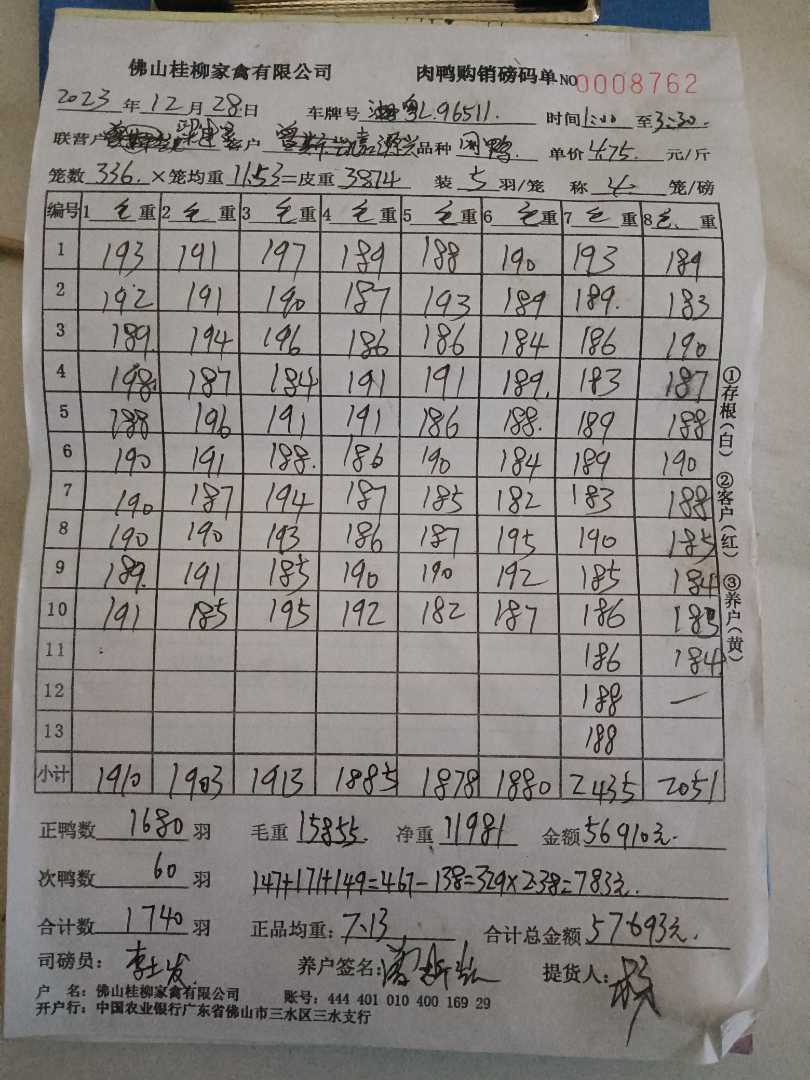 佛山桂柳家禽有限公司 肉鸭购销磅码单 NO 0008762
2023 年 12 月 28 日 车牌号 L.96511. 时间 1:00 至 3:30.
联营户 客户 品种 肉鸭 单价 4.75 元/斤
笼数 336. ×笼均重 11.53 =皮重 3874 装 5 羽/笼 称 4 笼/磅
编号 1 毛 重 2 毛 重 3 毛 重 4 毛 重 5 毛 重 6 毛 重 7 毛 重 8 毛 重
1 193 191 197 189 188 190 193 189
2 192 191 190 187 193 189 189. 183
3 189. 194 196 186 186 184 186 190
4 198 187 184 191 191 189. 183 187
5 188 196 191 191 186 188. 189 188
6 190 191 188. 186 190 184 189 190
7 190 187 194 187 185 182 183 188
8 190 190 193 186 187 195 190 185
9 189. 191 185 190 190 192 185 184
10 191 185 195 192 182 187 186 183
11 186 184
12 188 —
13 188
小计 1910 1903 1913 1885 1878 1880 2435 2051
①存根(白) ②客户(红) ③养户(黄)
正鸭数 1680 羽 毛重 15855. 净重 11981 金额 56910元.
次鸭数 60 羽 147+171+149=467-138=329×2.38=783元.
合计数 1740 羽 正品均重: 7.13 合计总金额 57693元.
司磅员: 养户签名: 提货人:
户 名: 佛山桂柳家禽有限公司 账号: 444 401 010 400 169 29
开户行: 中国农业银行广东省佛山市三水区三水支行